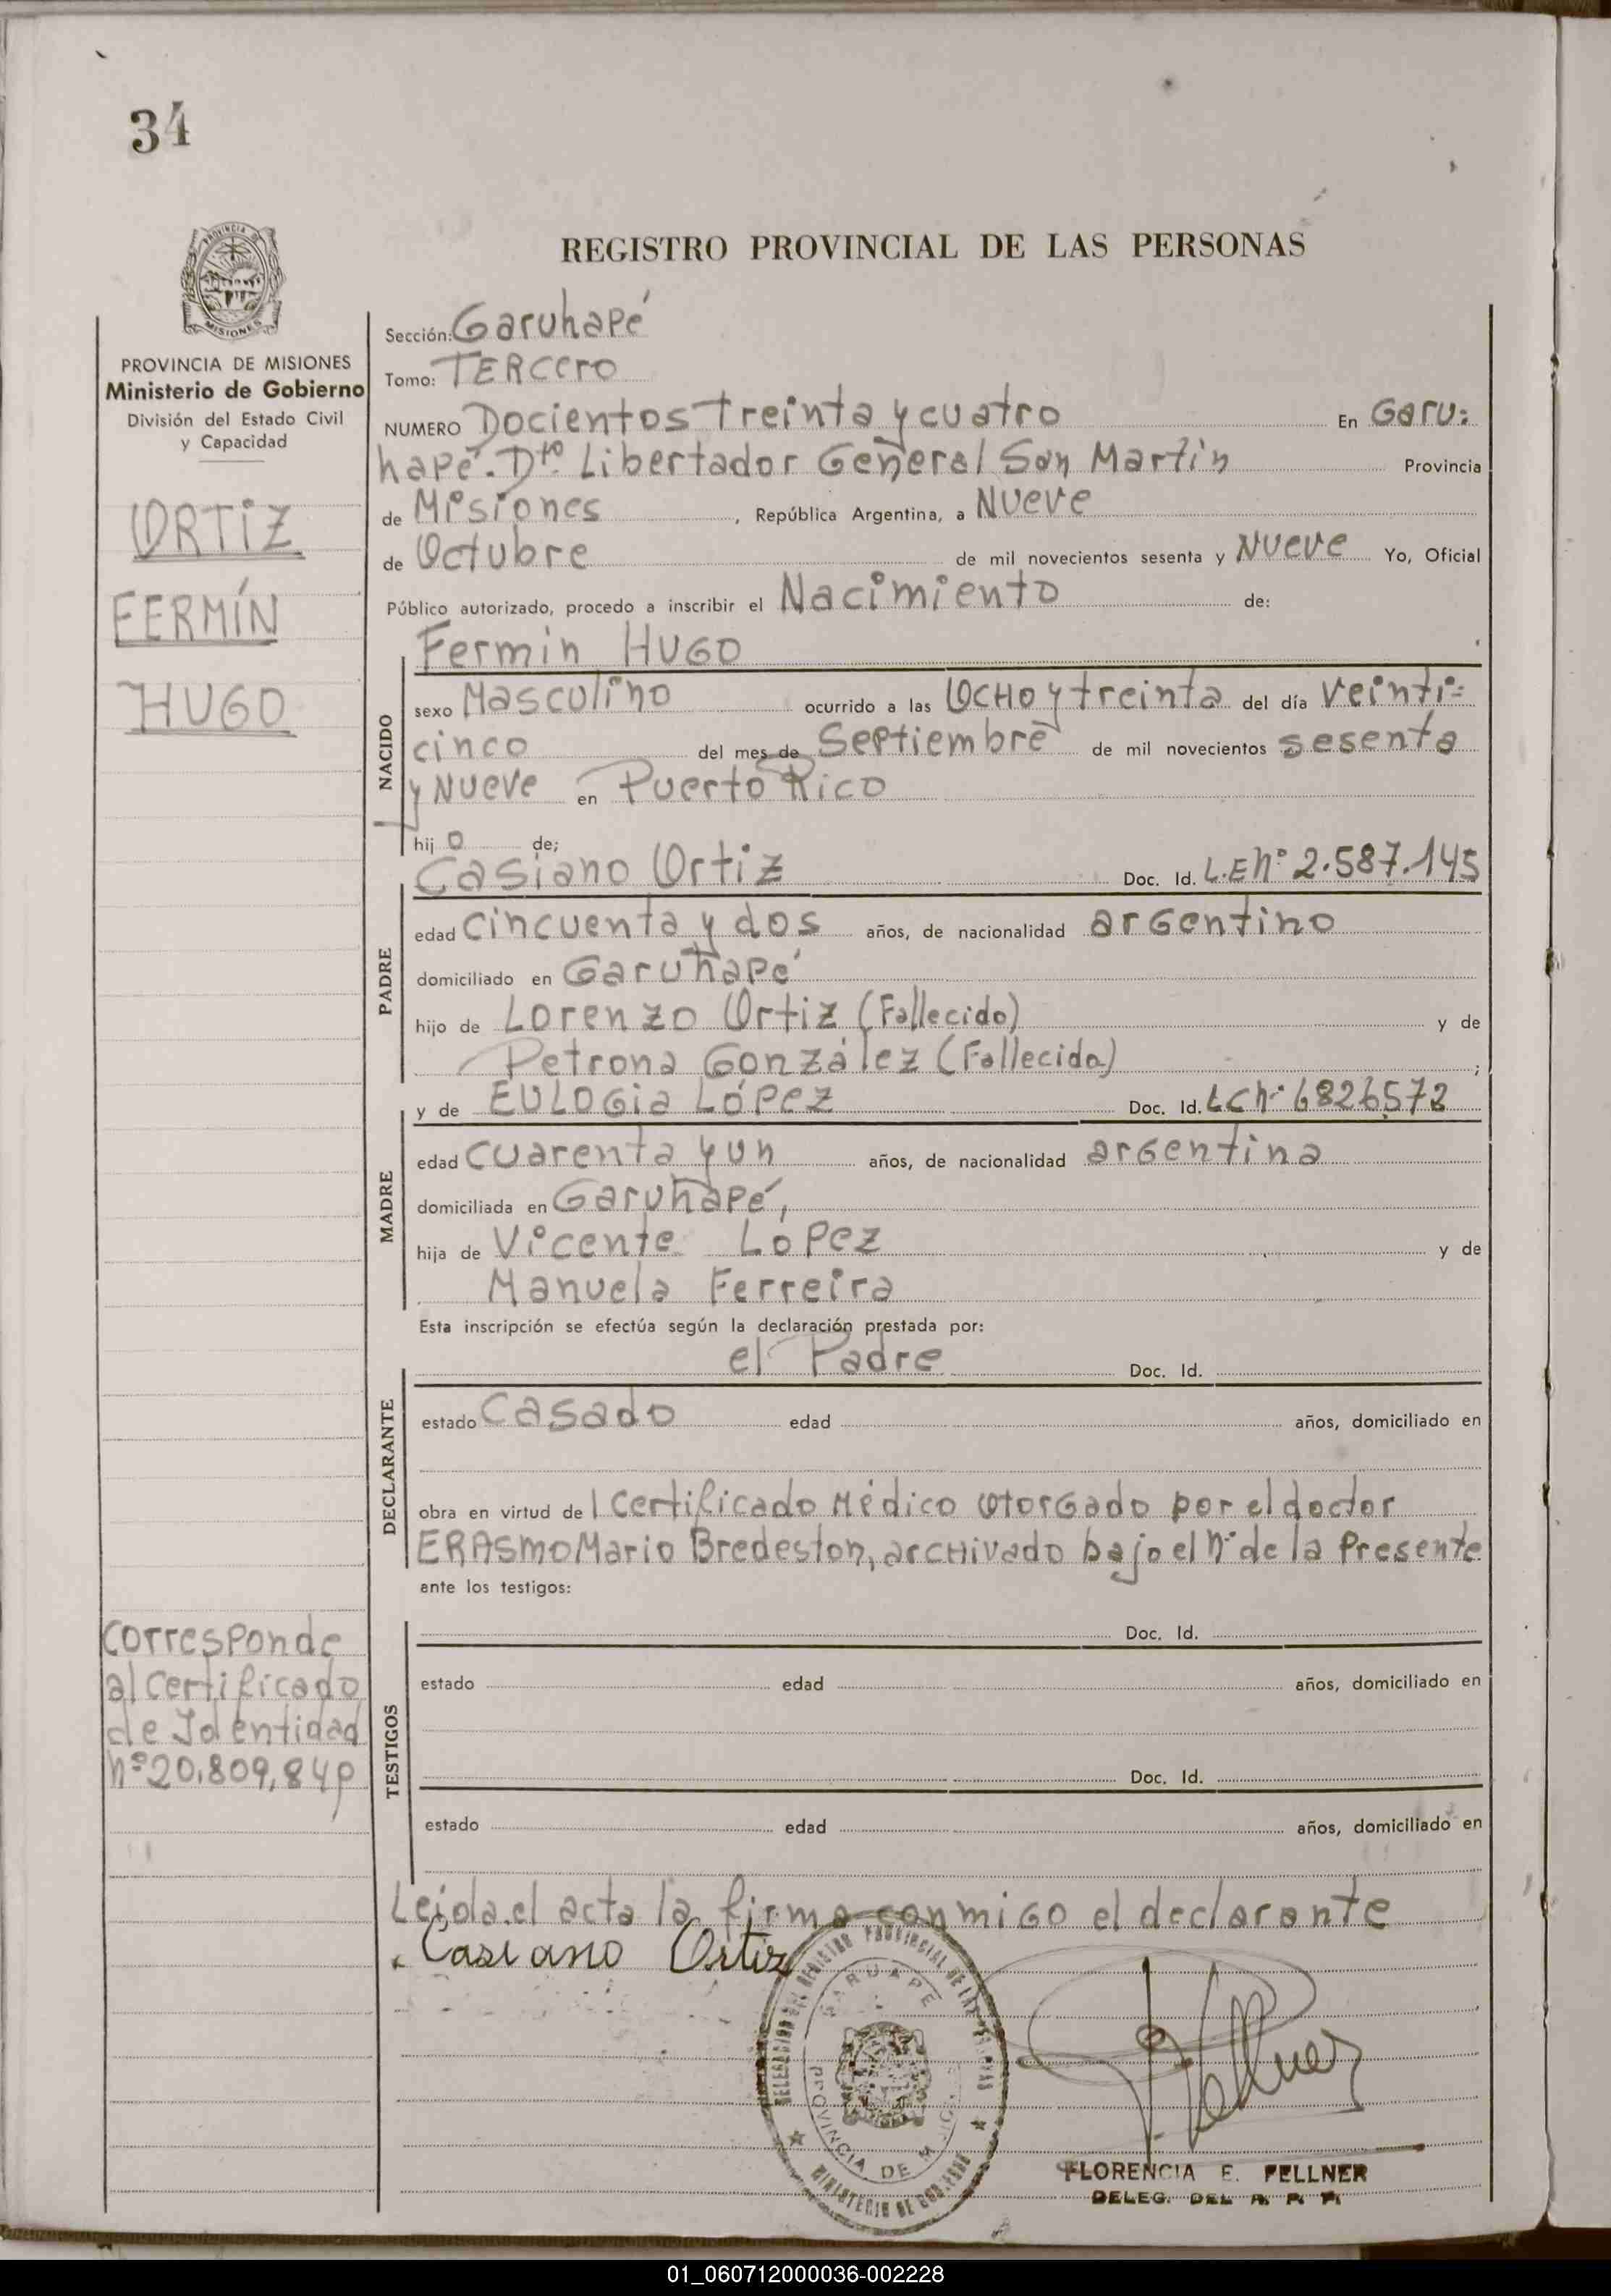 34
REGISTRO PROVINCIAL DE LAS PERSONAS
PROVINCIA DE MISIONES
Ministerio de Gobierno
División del Estado Civil
y Capacidad
ORTIZ
FERMÍN
HUGO
Sección: Garuhapé
Tomo: TERCero
NUMERO Docientos treinta y cuatro En Garu=
hapé. Dto. Libertador General San Martín Provincia
de Misiones, República Argentina, a Nueve
de Octubre de mil novecientos sesenta y Nueve Yo, Oficial
Público autorizado, procedo a inscribir el Nacimiento de:
Fermin HUGO
NACIDO
sexo Masculino ocurrido a las OCHO y treinta del día veinti=
cinco del mes de Septiembre de mil novecientos sesenta
y Nueve en Puerto Rico
hijo de;
Casiano Ortiz Doc. Id. L.E nº 2.587.145
PADRE
edad cincuenta y dos años, de nacionalidad argentino
domiciliado en Garuhapé
hijo de Lorenzo Ortiz (Fallecido) y de
Petrona González (Fallecida) ;
y de EULOGia LÓPez Doc. Id. LC nº 6826572
MADRE
edad cuarenta y un años, de nacionalidad argentina
domiciliada en Garuhapé,
hija de Vicente LoPez y de
Manuela Ferreira
Esta inscripción se efectúa según la declaración prestada por:
el Padre Doc. Id.
DECLARANTE
estado Casado edad años, domiciliado en
obra en virtud de 1 Certificado Médico otorgado por el doctor
ERASmo Mario Bredeston, arcHivado bajo el nº de la Presente
ante los testigos:
TESTIGOS
Doc. Id.
estado edad años, domiciliado en
Doc. Id.
estado edad años, domiciliado en
Corresponde
al Certificado
de Identidad
nº 20.809,849
Leida el acta la firma conmigo el declarante
Casiano Ortiz
DELEGACION DEL REGISTRO PROVINCIAL DE LAS PERSONAS
GARUAPE
PROVINCIA DE
MINISTERIO DE GOBIERNO
Fellner
FLORENCIA E. FELLNER
DELEG. DEL R. P. P.
01_060712000036-002228